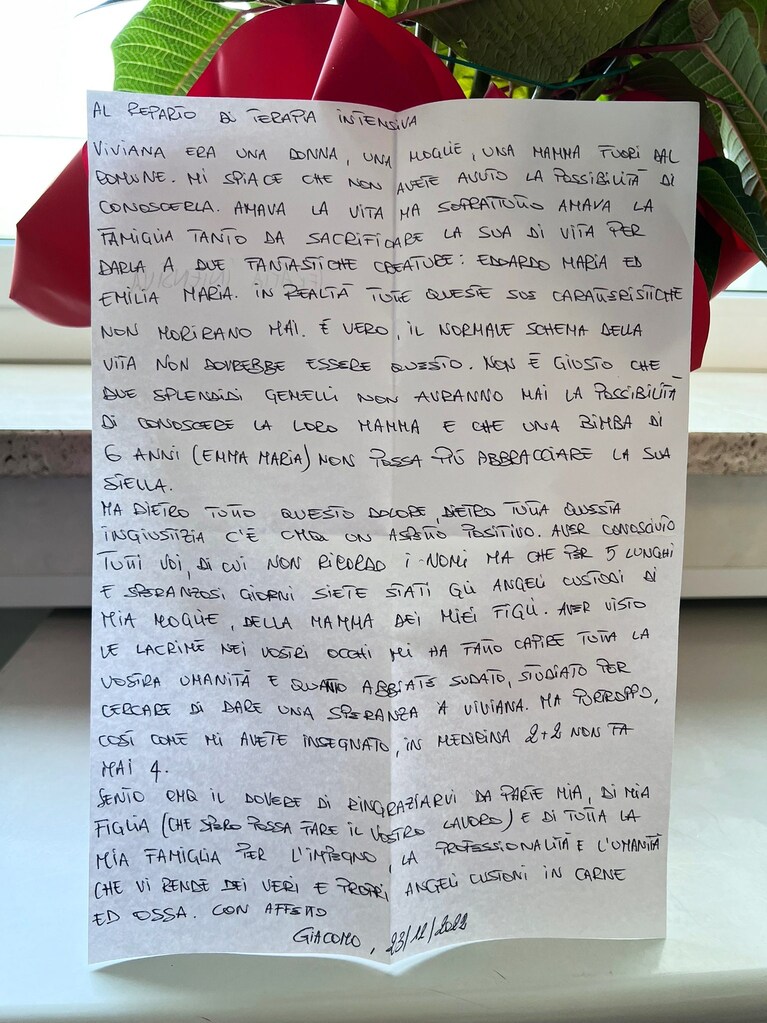 AL REPARTO DI TERAPIA INTENSIVA
VIVIANA ERA UNA DONNA, UNA MOGLIE, UNA MAMMA FUORI DAL
COMUNE. MI SPIACE CHE NON AVETE AVUTO LA POSSIBILITÀ DI
CONOSCERLA. AMAVA LA VITA MA SOPRATTUTTO AMAVA LA
FAMIGLIA TANTO DA SACRIFICARE LA SUA DI VITA PER
DARLA A DUE FANTASTICHE CREATURE: EDOARDO MARIA ED
EMILIA MARIA. IN REALTÀ TUTTE QUESTE SUE CARATTERISTICHE
NON MORIRANO MAI. È VERO, IL NORMALE SCHEMA DELLA
VITA NON DOVREBBE ESSERE QUESTO. NON È GIUSTO CHE
DUE SPLENDIDI GEMELLI NON AVRANNO MAI LA POSSIBILITÀ
DI CONOSCERE LA LORO MAMMA E CHE UNA BIMBA DI
6 ANNI (EMMA MARIA) NON POSSA PIÙ ABBRACCIARE LA SUA
STELLA.
MA DIETRO TUTTO QUESTO DOLORE, DIETRO TUTTA QUESTA
INGIUSTIZIA C'È CMQ UN ASPETTO POSITIVO. AVER CONOSCIUTO
TUTTI VOI, DI CUI NON RICORDO I NOMI MA CHE PER 5 LUNGHI
E SPERANZOSI GIORNI SIETE STATI GLI ANGELI CUSTODI DI
MIA MOGLIE, DELLA MAMMA DEI MIEI FIGLI. AVER VISTO
LE LACRIME NEI VOSTRI OCCHI MI HA FATTO CAPIRE TUTTA LA
VOSTRA UMANITÀ E QUANTO ABBIATE SUDATO, STUDIATO PER
CERCARE DI DARE UNA SPERANZA A VIVIANA. MA PURTROPPO,
COSÌ COME MI AVETE INSEGNATO, IN MEDICINA 2+2 NON FA
MAI 4.
SENTO CMQ IL DOVERE DI RINGRAZIARVI DA PARTE MIA, DI MIA
FIGLIA (CHE SPERO POSSA FARE IL VOSTRO LAVORO) E DI TUTTA LA
MIA FAMIGLIA PER L'IMPEGNO, LA PROFESSIONALITÀ E L'UMANITÀ
CHE VI RENDE DEI VERI E PROPRI ANGELI CUSTONI IN CARNE
ED OSSA. CON AFFETTO
GIACOMO, 23/12/2022